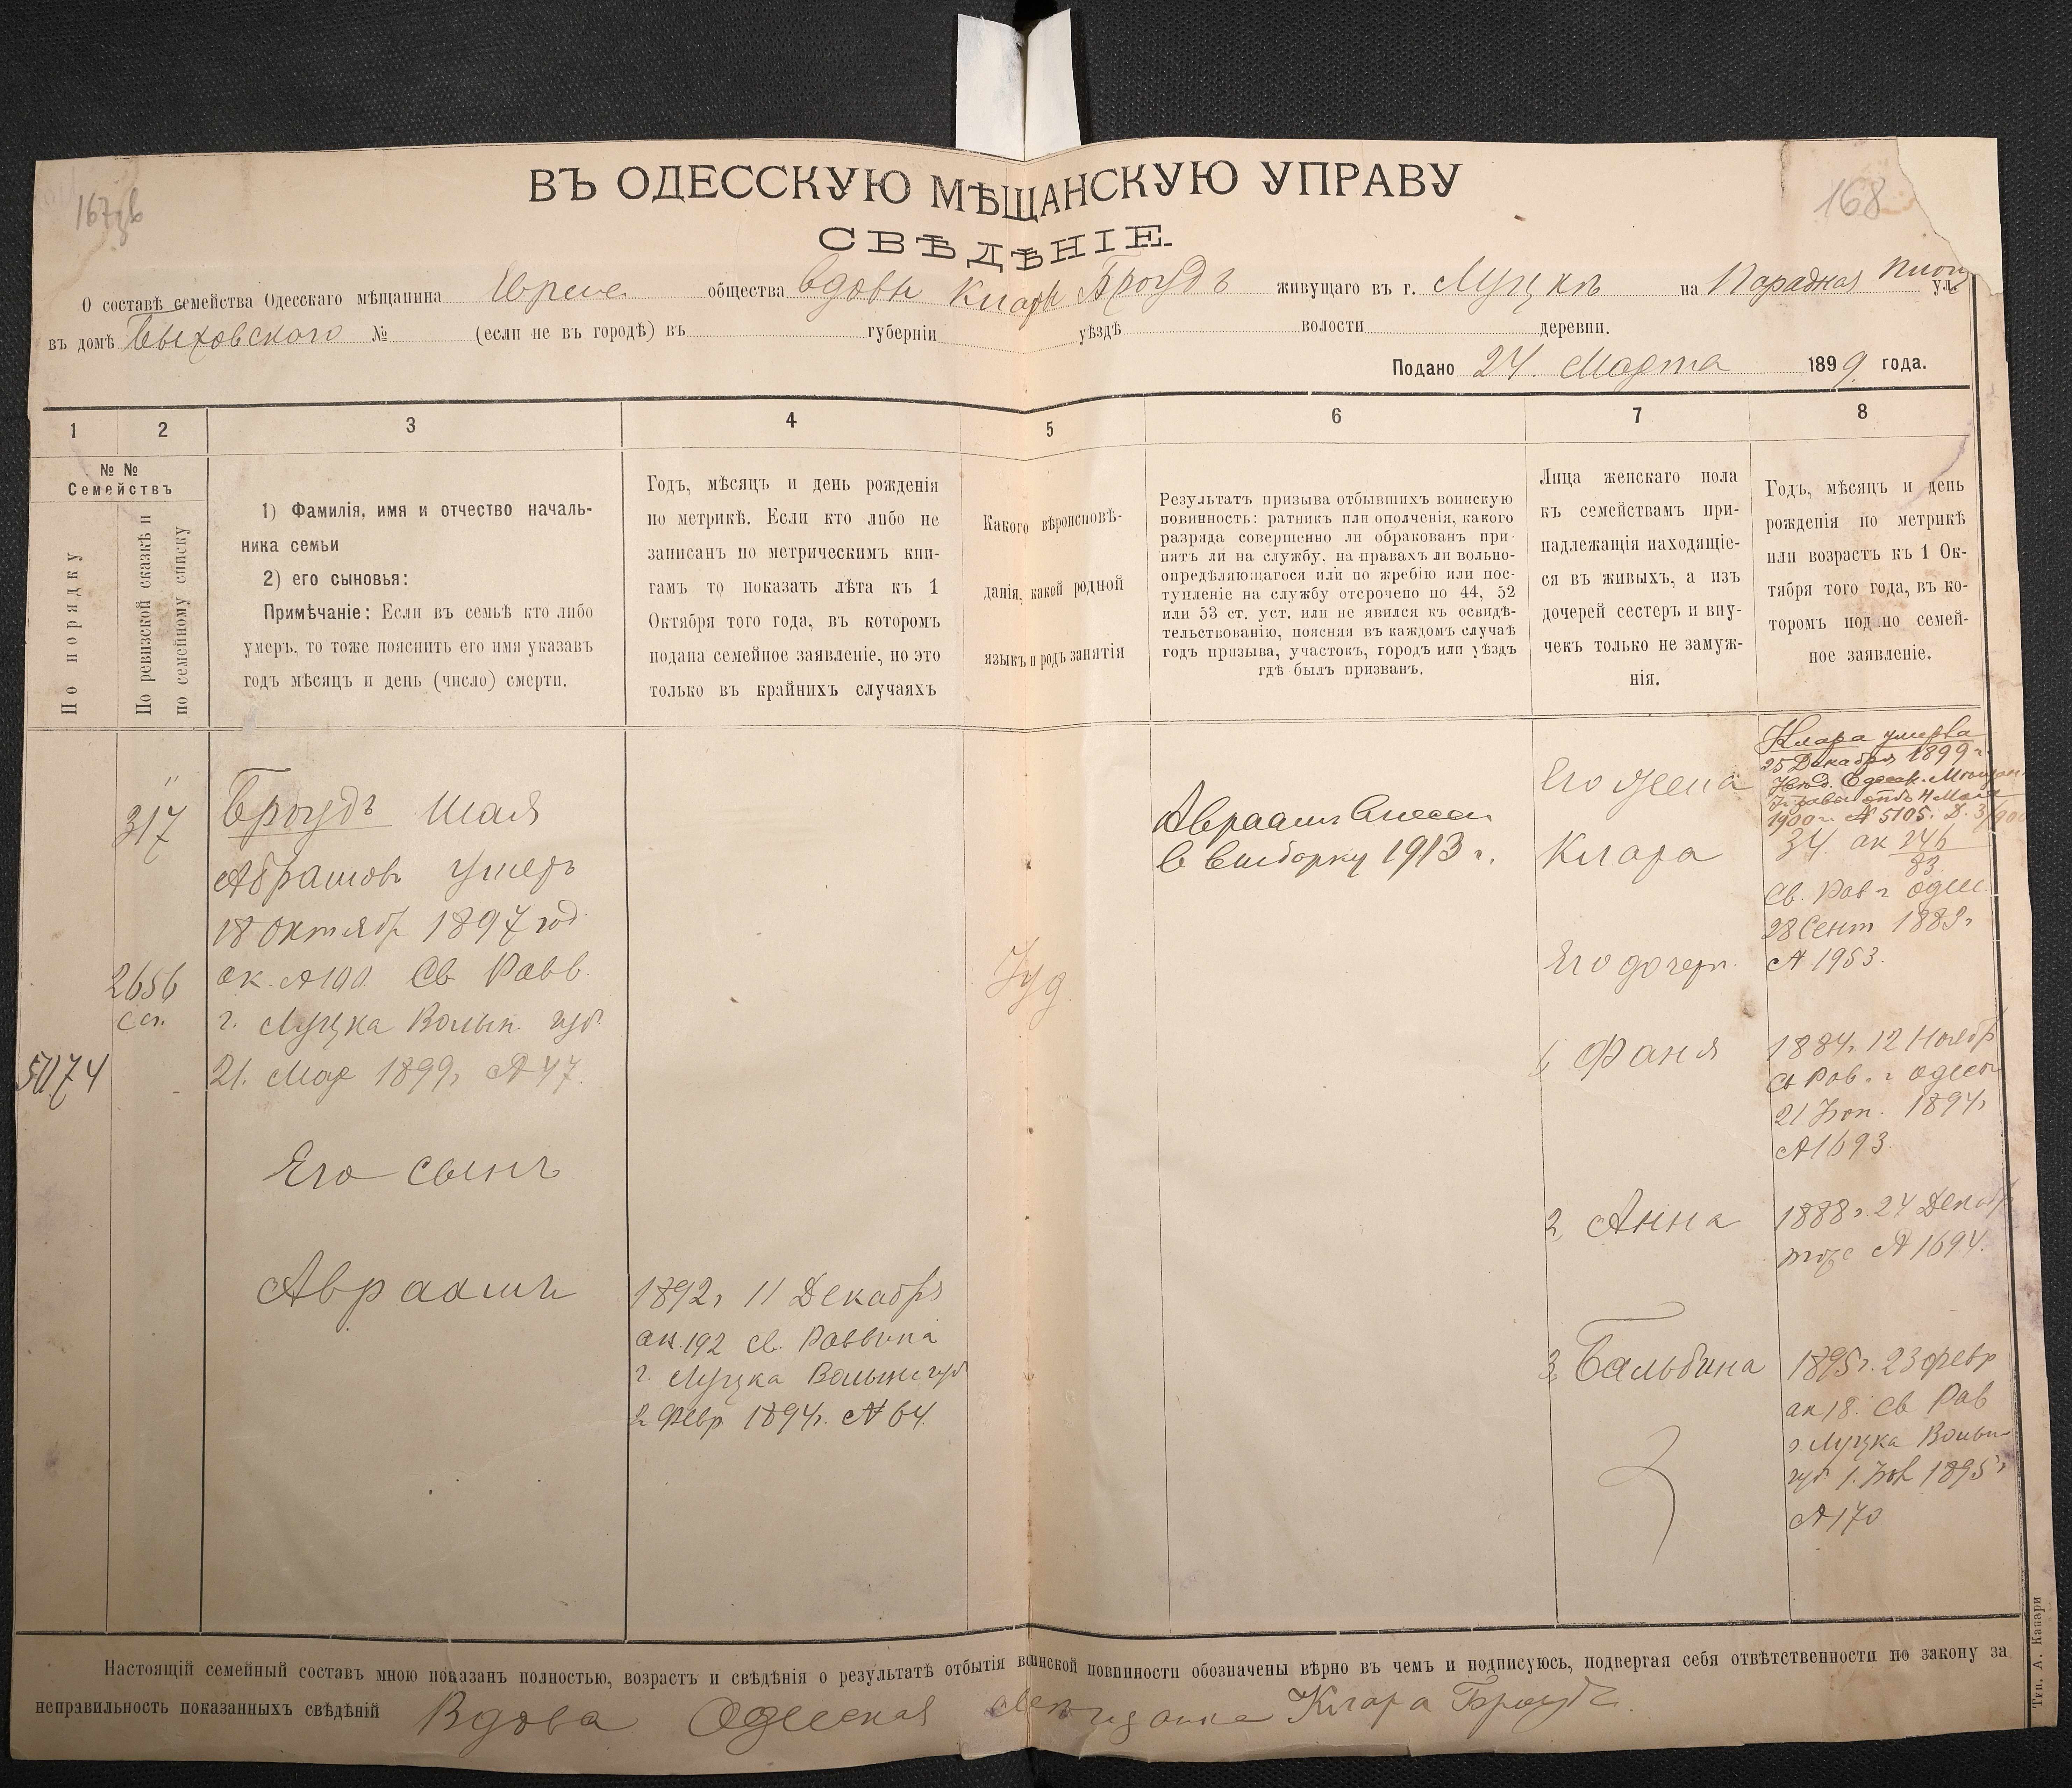 167 168
ВЪ ОДЕССКУЮ МѢЩАНСКУЮ УПРАВУ
СВѢДѢНІЕ.
О составѣ семейства Одесскаго мѣщанина общества вдовы Клары Броудъ живущаго въ г. Луцкѣ на ул.
въ домѣ Быховскаго № (если не въ городѣ) въ губерніи уѣздѣ волости деревни.
Подано 24. Марта 1899 года.
1 2 3 4 5 6 7 8
№ №
Семействъ
По порядку
По ревизской сказкѣ и
по семейному списку
1) Фамилія, имя и отчество началь-
ника семьи
2) его сыновья:
Примѣчаніе: Если въ семьѣ кто либо
умеръ, то тоже пояснить его имя указавъ
годъ мѣсяцъ и день (число) смерти.
Годъ, мѣсяцъ и день рожденія
по метрикѣ. Если кто либо не
записанъ по метрическимъ кни-
гамъ то показать лѣта къ 1
Октября того года, въ которомъ
подана семейное заявленіе, но это
только въ крайнихъ случаяхъ
Какого вѣроисповѣ-
данія, какой родной
языкъ и родъ занятія
Результатъ призыва отбывшихъ воинскую
повинность: ратникъ или ополченія, какого
разряда совершенно ли обракованъ при-
нятъ ли на службу, на правахъ ли вольно-
опредѣляющагося или по жребію или пос-
тупленіе на службу отсрочено по 44, 52
или 53 ст. уст. или не явился къ освидѣ-
тельствованію, поясняя въ каждомъ случаѣ
годъ призыва, участокъ, городъ или уѣздъ
гдѣ былъ призванъ.
Лица женскаго пола
къ семействамъ при-
надлежащія находящіе-
ся въ живыхъ, а изъ
дочерей сестеръ и вну-
чекъ только не замуж-
нія.
Годъ, мѣсяцъ и день
рожденія по метрикѣ
или возрастъ къ 1 Ок-
тября того года, въ ко-
торомъ под по семей-
ное заявленіе.
317
2656
5074
Броудъ Шая
Абрамовъ умеръ
18 октябр 1897 год.
ак. №190 Св Равв.
г. Луцка Волын. губ.
21. Мар 1899г №47.
Его сынъ
Авраамъ
1892г 11 Декабря
ак. 192 св. Раввина
г. Луцка Волынс губ
2 Февр 1894г. № 64.
Іуд.
Авраамъ внесен
в выборку 1913 г.
Его жена
Клара
Его дочери.
1, Фаня
2, Анна
3, Бальбина
Клара умерла
25 Декабря 1899 г.
1900 г. № 5105.
34. ак 246
83
Св. Рав г Одес.
28 Сент. 1883г
№ 1953.
1884г. 12 Ноябр
Св Рав. г Одессы
1894г
№1693.
1888г. 24 Декабр
тоже № 1694.
1895г. 23 февр
ак 18. Св Рав
г. Луцка Волын
губ 1895г
№170
Настоящій семейный составъ мною показанъ полностью, возрастъ и свѣдѣнія о результатѣ отбытія воинской повинности обозначены вѣрно въ чемъ и подписуюсь, подвергая себя отвѣтственности по закону за
неправильность показанныхъ свѣдѣній Вдова Одесская мещанка Клара Броудъ
Тип. А. Капари